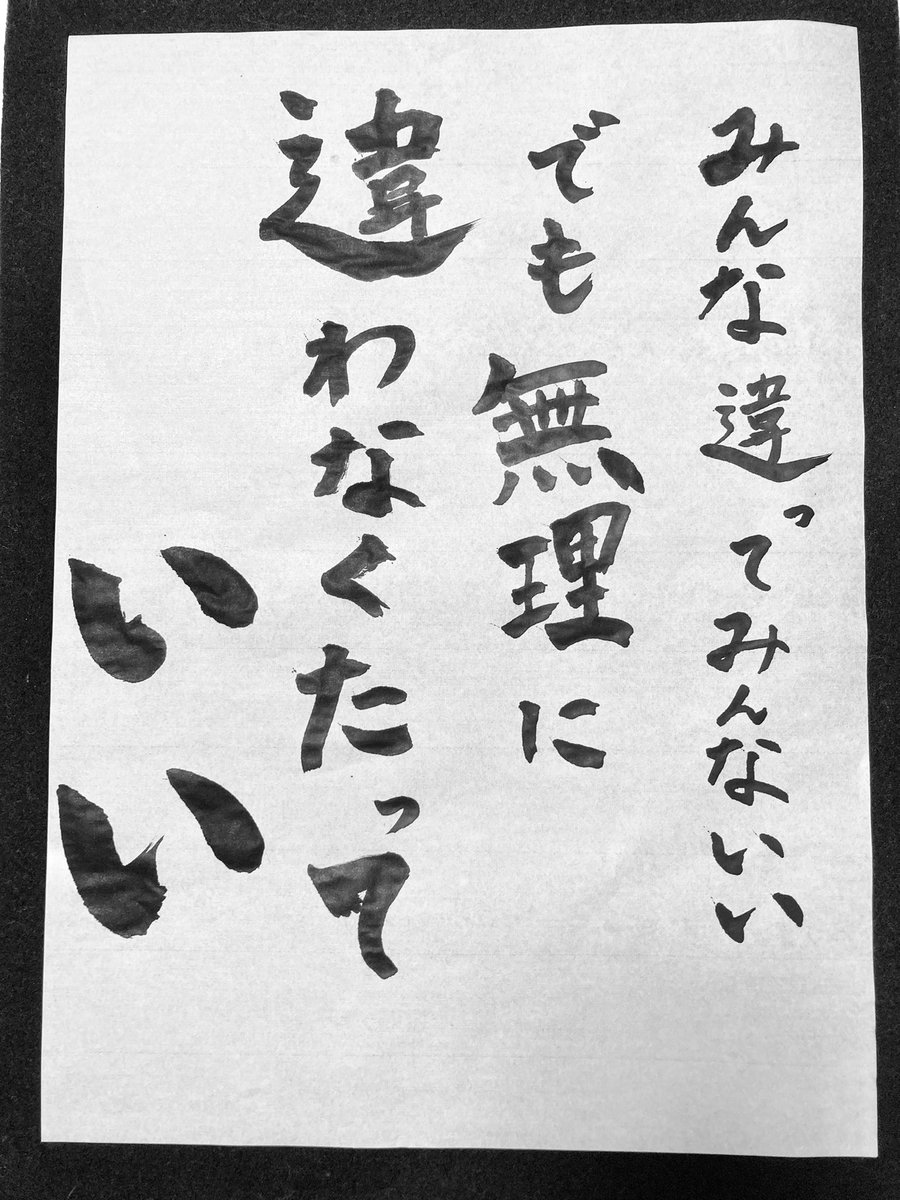 みんな違ってみんないい
でも無理に
違わなくたって
いい